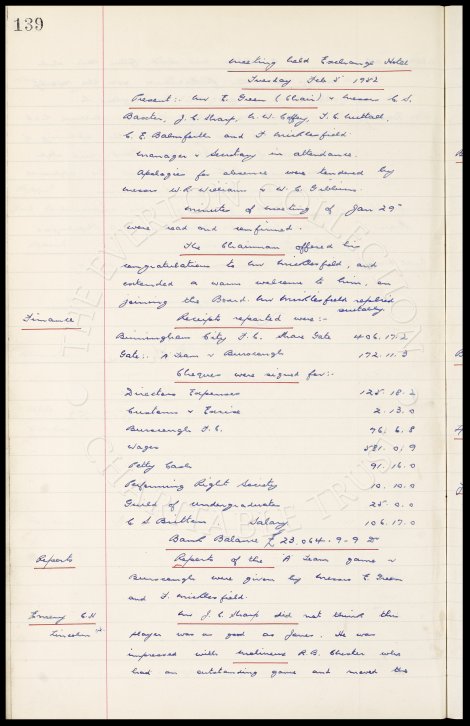 139
Meeting held Exchange Hotel
Tuesday Feb 5 1952
Present:- Mr E. Green (Chair) & Messrs C.S.
Baxter, J.C. Sharp, N.W. Coffey, T.C. Nuttall,
C.E. Balmforth and F. Micklesfield.
Manager & Secretary in attendance.
Apologies for absence were tendered by
Messrs W.R. Williams & W.C. Gibbins.
Minutes of meeting of Jan 29th
were read and confirmed.
The Chairman offered his
congratulations to Mr Micklesfield, and
extended a warm welcome to him, on
joining the Board. Mr Micklesfield replied
suitably.
Finance
Receipts reported were:-
Birmingham City F.C. Share Gate 406.17.2
Gate:- A Team v Burscough 172.11.3
Cheques were signed for:-
Directors Expenses 125.18.2
Customs & Excise 2.13.0
Burscough F.C. 76.6.8
Wages 581.0.9
Petty Cash 91.16.0
Performing Right Society 10.10.0
Guild of Undergraduates 25.0.0
C S Britton Salary 106.17.0
Bank Balance £23,064-9-9 Dr
Reports
Reports of the 'A Team game v
Burscough were given by Messrs E. Green
and F. Micklesfield.
Emery C.H
Lincoln
Mr J.C. Sharp did not think this
player was as good as Jones. He was
impressed with Molineux R.B. Chester who
had an outstanding game and moved the
© THE EVERTON COLLECTION CHARITABLE TRUST